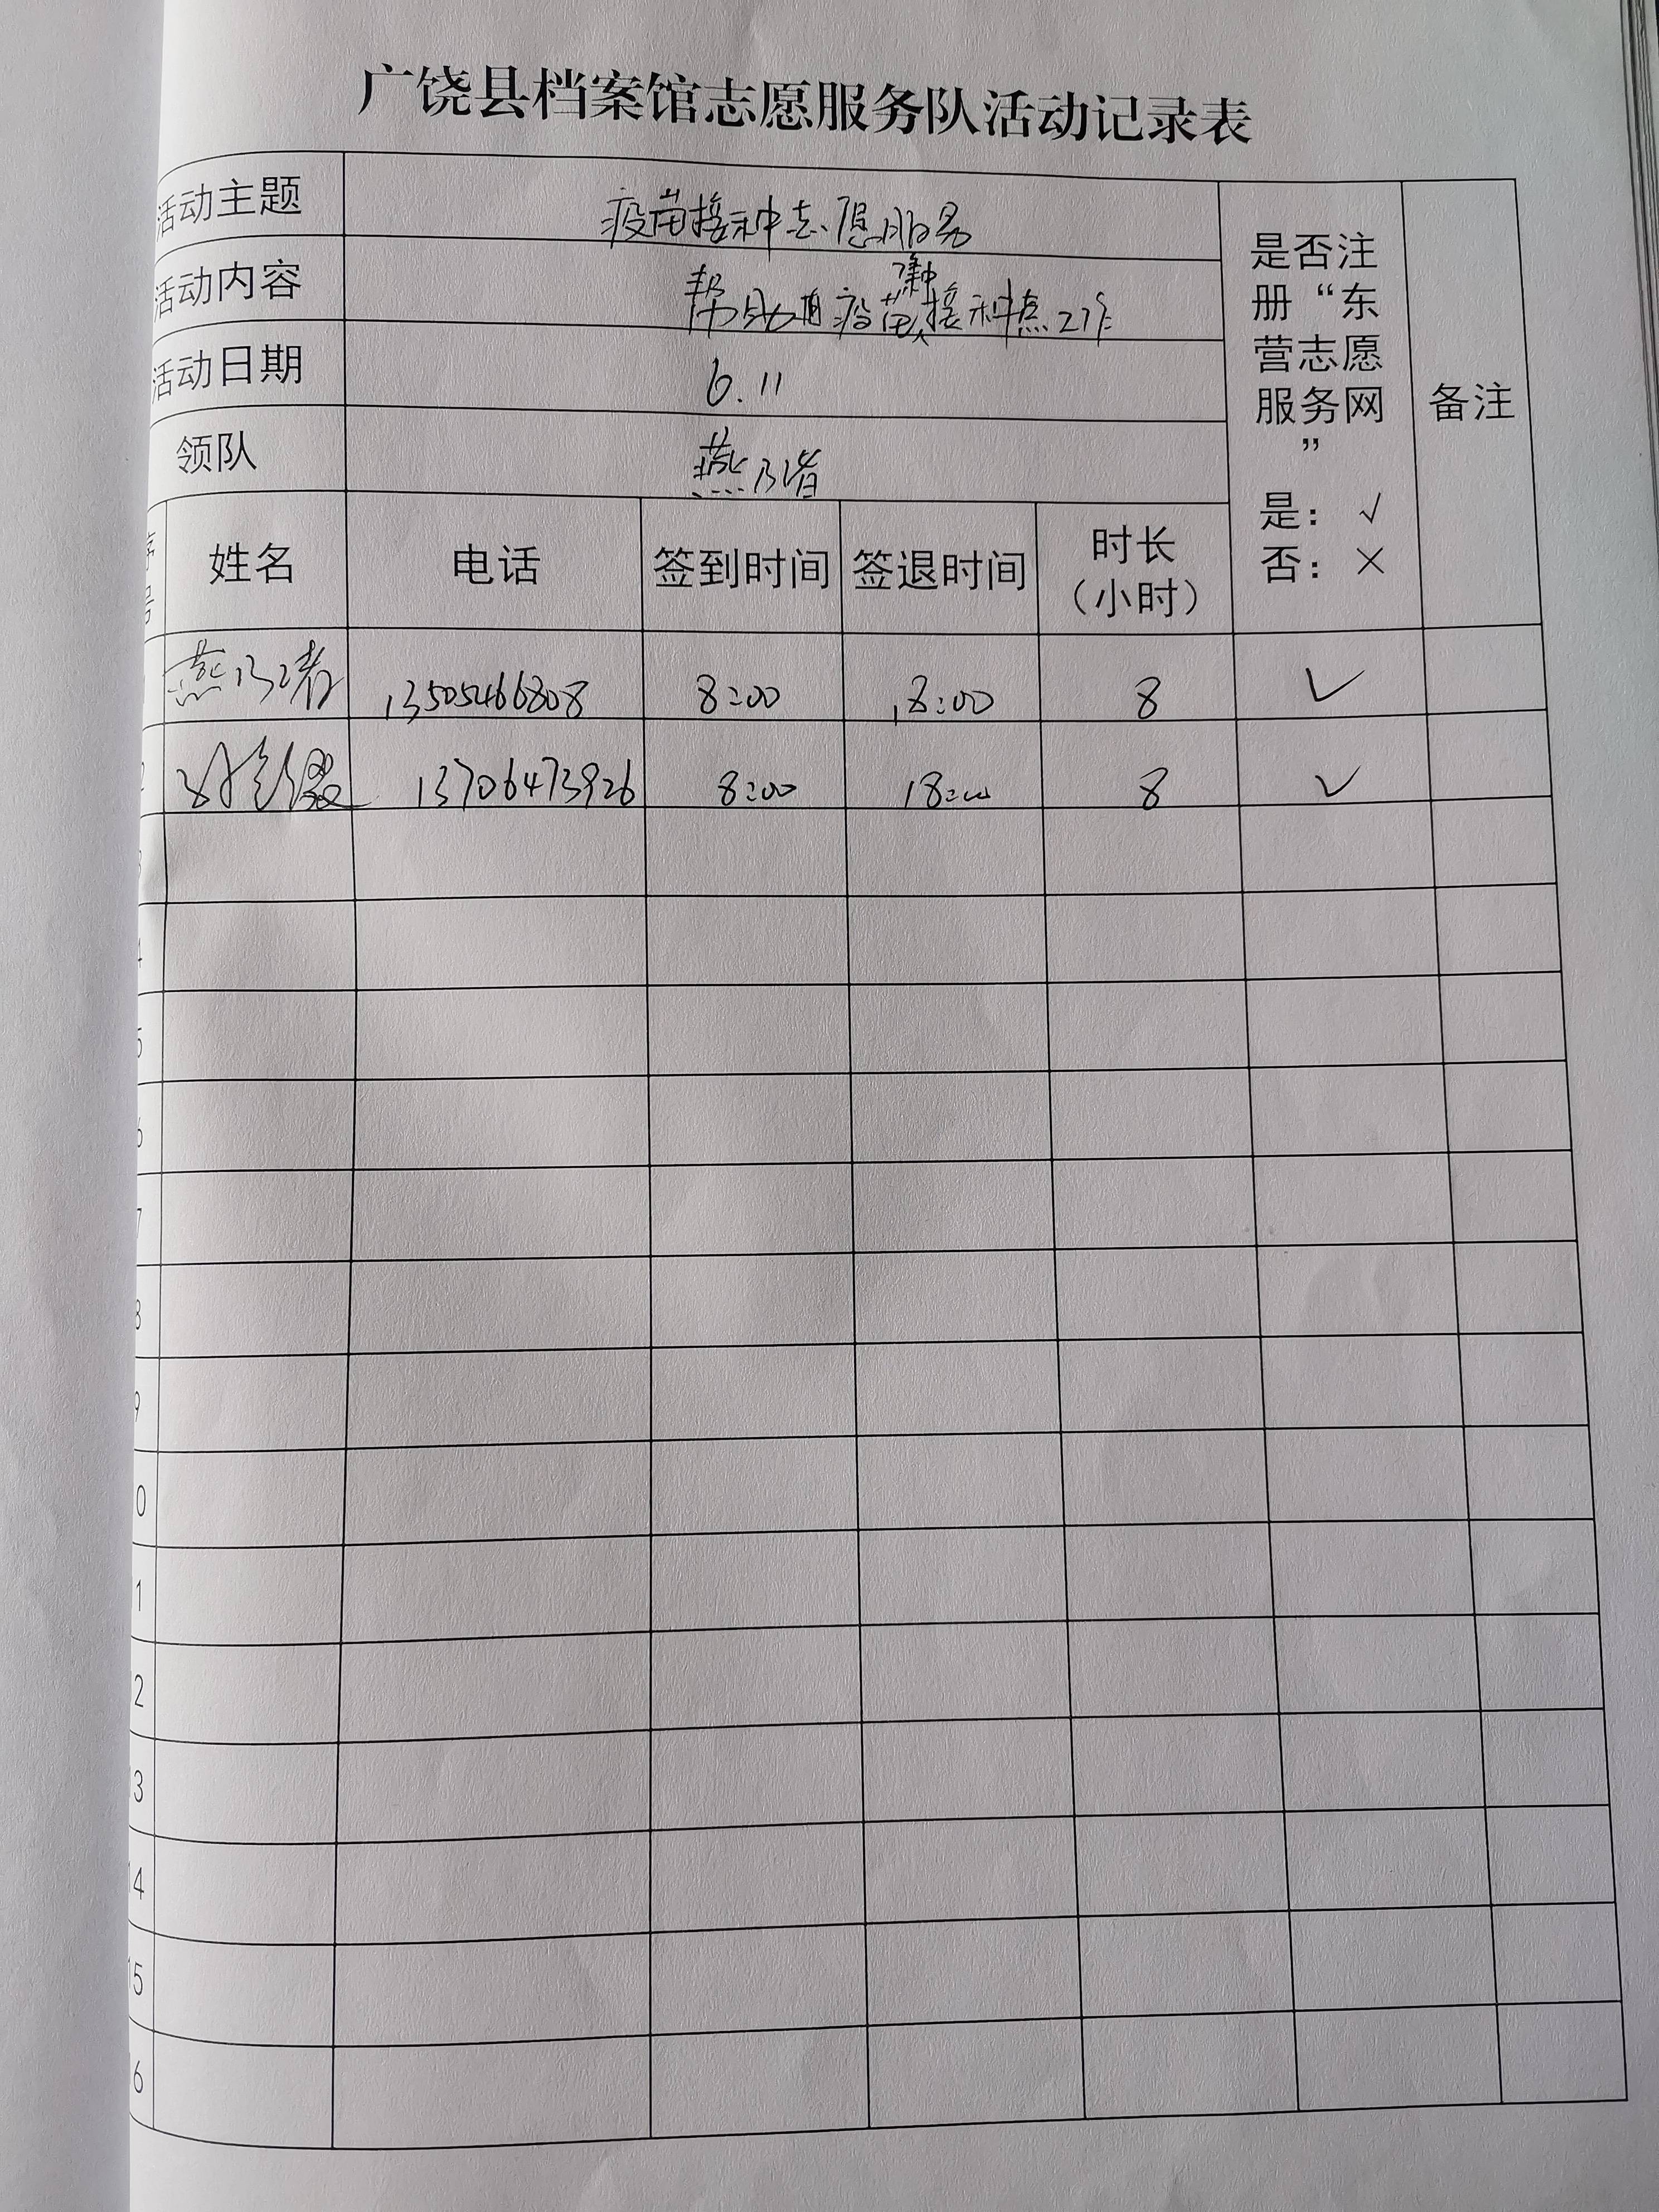 广饶县档案馆志愿服务队活动记录表
活动主题 疫苗接种志愿服务
活动内容 帮助疫苗接种点工作
活动日期 6.11
领队 燕乃
是否注册“东营志愿服务网”
是：√
否：×
备注
序号 姓名 电话 签到时间 签退时间 时长（小时）
燕乃 13505466808 8:00 18:00 8 ✓
2 13706473926 8:00 18:00 8 ✓
3
4
5
6
7
8
9
0
1
2
3
14
15
6